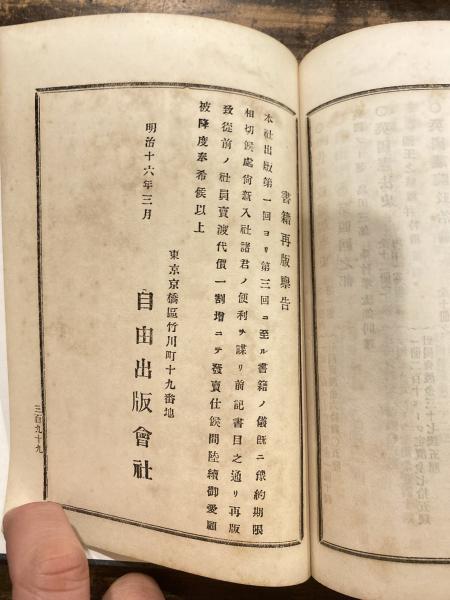 書籍再版廣告
本社出版第一回ヨリ第三回ニ至ル書籍ノ儀既ニ豫約期限
相切候處尙新入社諸君ノ便利ヲ謀リ前記書目之通リ再版
致從前ノ社員賣渡代價一割增ニテ發賣仕候間陸續御愛顧
被降度奉希候以上
明治十六年三月
東京京橋區竹川町十九番地
自由出版會社
三百九十九